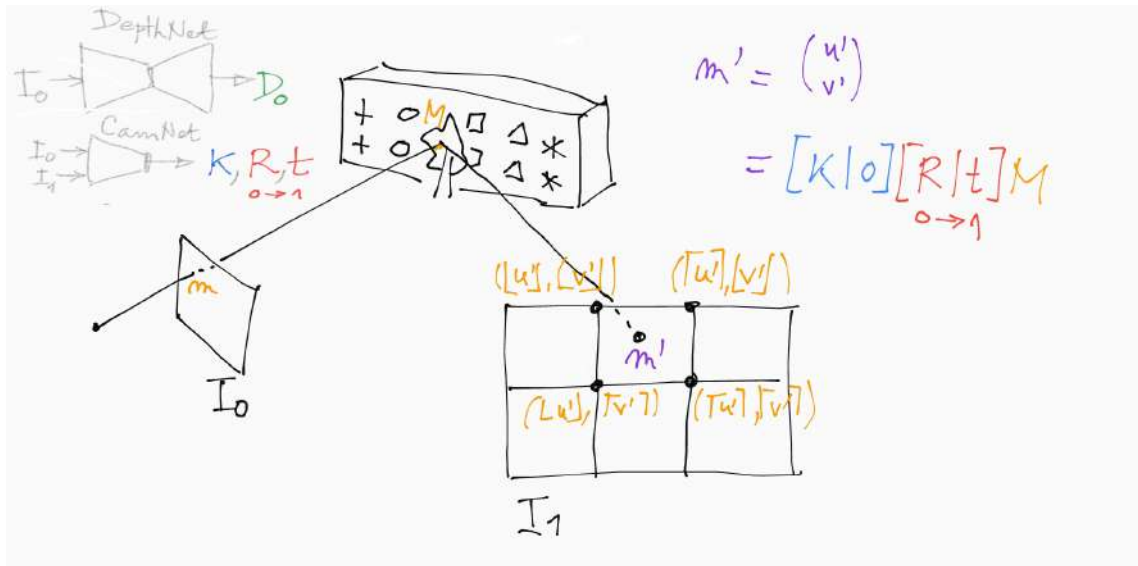 DepthNet
I₀ D₀
CamNet
I₀
I₁ K, R, t
0→1
M
m' = (u' v')
= [K|0][R|t]M
0→1
m
I₀
(⌊u'⌋,⌊v'⌋) (⌈u'⌉,⌊v'⌋)
m'
(⌊u'⌋,⌈v'⌉) (⌈u'⌉,⌈v'⌉)
I₁